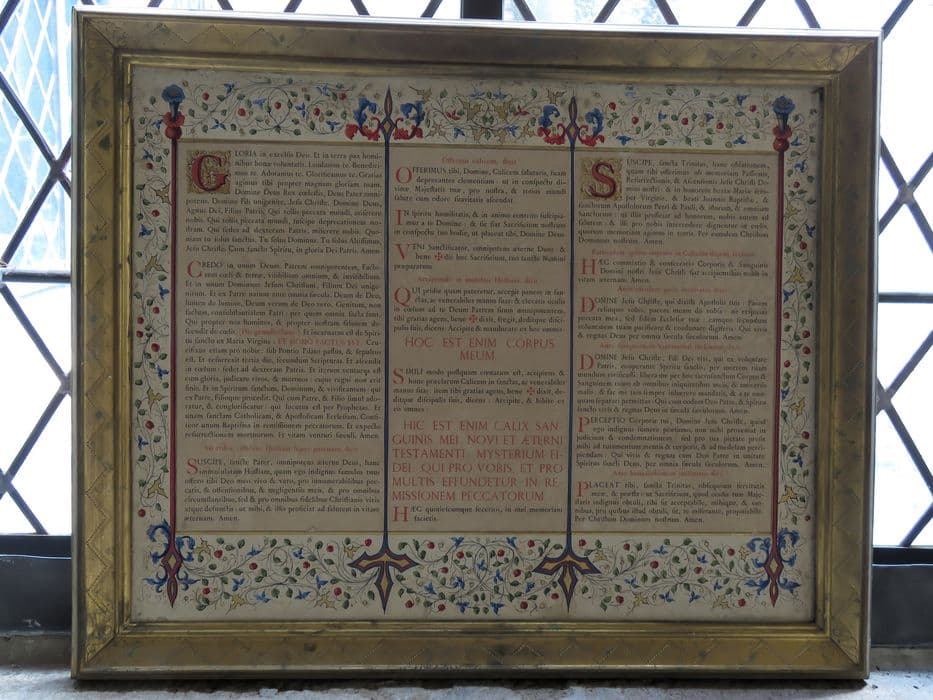 GLORIA in excelsis Deo. Et in terra pax homi-
nibus bonæ voluntatis. Laudamus te. Benedici-
mus te. Adoramus te. Glorificamus te. Gratias
agimus tibi propter magnam gloriam tuam.
Domine Deus Rex cœlestis, Deus Pater omni-
potens. Domine Fili unigenite, Jesu Christe. Domine Deus,
Agnus Dei, Filius Patris. Qui tollis peccata mundi, miserere
nobis. Qui tollis peccata mundi, suscipe deprecationem no-
stram. Qui sedes ad dexteram Patris, miserere nobis. Quo-
niam tu solus sanctus. Tu solus Dominus. Tu solus Altissimus,
Jesu Christe. Cum Sancto Spiritu, in gloria Dei Patris. Amen.
CREDO in unum Deum. Patrem omnipotentem, Facto-
rem cœli & terræ; visibilium omnium, & invisibilium.
Et in unum Dominum Jesum Christum, Filium Dei unige-
nitum. Et ex Patre natum ante omnia sæcula. Deum de Deo,
lumen de lumine, Deum verum de Deo vero. Genitum, non
factum, consubstantialem Patri: per quem omnia facta sunt.
Qui propter nos homines, & propter nostram salutem de-
scendit de cœlis. Et incarnatus est de Spiri-
tu sancto ex Maria Virgine: ET HOMO FACTUS EST. Cru-
cifixus etiam pro nobis: sub Pontio Pilato passus, & sepultus
est. Et resurrexit tertia die, secundum Scripturas. Et ascendit
in cœlum: sedet ad dexteram Patris. Et iterum venturus est
cum gloria, judicare vivos, & mortuos: cujus regni non erit
finis. Et in Spiritum sanctum, Dominum, & vivificantem: qui
ex Patre, Filioque procedit. Qui cum Patre, & Filio simul ado-
ratur, & conglorificatur: qui locutus est per Prophetas. Et
unam sanctam Catholicam, & Apostolicam Ecclesiam. Confi-
teor unum Baptisma in remissionem peccatorum. Et expecto
resurrectionem mortuorum. Et vitam venturi sæculi. Amen.
SUSCIPE, sancte Pater, omnipotens æterne Deus, hanc
immaculatam Hostiam, quam ego indignus famulus tuus
offero tibi Deo meo vivo & vero, pro innumerabilibus pec-
catis, & offensionibus, & negligentiis meis, & pro omnibus
circumstantibus, sed & pro omnibus fidelibus Christianis vivis
atque defunctis: ut mihi, & illis proficiat ad salutem in vitam
æternam. Amen.
Offerens calicem, dicit
OFFERIMUS tibi, Domine, Calicem salutaris, tuam
deprecantes clementiam: ut in conspectu di-
vinæ Majestatis tuæ, pro nostra, & totius mundi
salute cum odore suavitatis ascendat.
IN spiritu humilitatis, & in animo contrito suscipia-
mur a te Domine: & sic fiat Sacrificium nostrum
in conspectu tuo hodie, ut placeat tibi, Domine Deus.
VENI Sanctificator, omnipotens æterne Deus: &
bene ✠ dic hoc Sacrificium, tuo sancto Nomini
præparatum.
QUI pridie quam pateretur, accepit panem in san-
ctas, ac venerabiles manus suas: & elevatis oculis
in cœlum ad te Deum Patrem suum omnipotentem,
tibi gratias agens, bene ✠ dixit, fregit, deditque disci-
pulis suis, dicens: Accipite & manducate ex hoc omnes:
HOC EST ENIM CORPUS
MEUM.
SIMILI modo postquam cœnatum est, accipiens &
hunc præclarum Calicem in sanctas, ac venerabiles
manus suas: item tibi gratias agens, bene ✠ dixit, de-
ditque discipulis suis, dicens: Accipite, & bibite ex
eo omnes:
HIC EST ENIM CALIX SAN-
GUINIS MEI NOVI ET ÆTERNI
TESTAMENTI. MYSTERIUM FI-
DEI. QUI PRO VOBIS, ET PRO
MULTIS EFFUNDETUR IN RE-
MISSIONEM PECCATORUM
HÆC quotiescumque feceritis, in mei memoriam
facietis.
SUSCIPE, sancta Trinitas, hanc oblationem,
quam tibi offerimus ob memoriam Passionis,
Resurrectionis, & Ascensionis Jesu Christi Do-
mini nostri: & in honorem beatæ Mariæ sem-
per Virginis, & beati Joannis Baptistæ, &
sanctorum Apostolorum Petri & Pauli, & istorum, & omnium
Sanctorum: ut illis proficiat ad honorem, nobis autem ad
salutem: & illi pro nobis intercedere dignentur in cœlis,
quorum memoriam agimus in terris. Per eumdem Christum
Dominum nostrum. Amen.
HÆC commixtio & consecratio Corporis & Sanguinis
Domini nostri Jesu Christi fiat accipientibus nobis in
vitam æternam. Amen.
DOMINE Jesu Christe, qui dixisti Apostolis tuis: Pacem
relinquo vobis, pacem meam do vobis: ne respicias
peccata mea, sed fidem Ecclesiæ tuæ: eamque secundum
voluntatem tuam pacificare & coadunare digneris. Qui vivis
& regnas Deus per omnia sæcula sæculorum. Amen.
DOMINE Jesu Christe, Fili Dei vivi, qui ex voluntate
Patris, cooperante Spiritu sancto, per mortem tuam
mundum vivificasti: libera me per hoc sacrosanctum Corpus &
Sanguinem tuum ab omnibus iniquitatibus meis, & universis
malis: & fac me tuis semper inhærere mandatis, & a te num-
quam separari permittas: Qui cum eodem Deo Patre, & Spiritu
sancto vivis & regnas Deus in sæcula sæculorum. Amen.
PERCEPTIO Corporis tui, Domine Jesu Christe, quod
ego indignus sumere præsumo, non mihi proveniat in
judicium & condemnationem: sed pro tua pietate prosit
mihi ad tutamentum mentis & corporis, & ad medelam perci-
piendam: Qui vivis & regnas cum Deo Patre in unitate
Spiritus sancti Deus, per omnia sæcula sæculorum. Amen.
PLACEAT tibi, sancta Trinitas, obsequium servitutis
meæ, & præsta: ut Sacrificium, quod oculis tuæ Maje-
statis indignus obtuli, tibi sit acceptabile, mihique, & om-
nibus, pro quibus illud obtuli, sit, te miserante, propitiabile.
Per Christum Dominum nostrum. Amen.